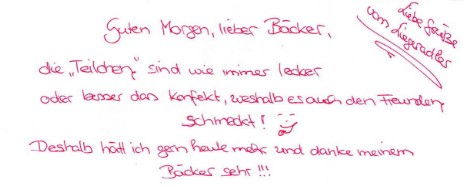 Guten Morgen, lieber Bäcker,
Liebe Grüße
vom Liegeradler
die „Teilchen“ sind wie immer lecker
oder besser das Konfekt, weshalb es auch den Freunden
schmeckt!
Deshalb hätt ich gern heute mehr und danke meinem
Bäcker sehr !!!